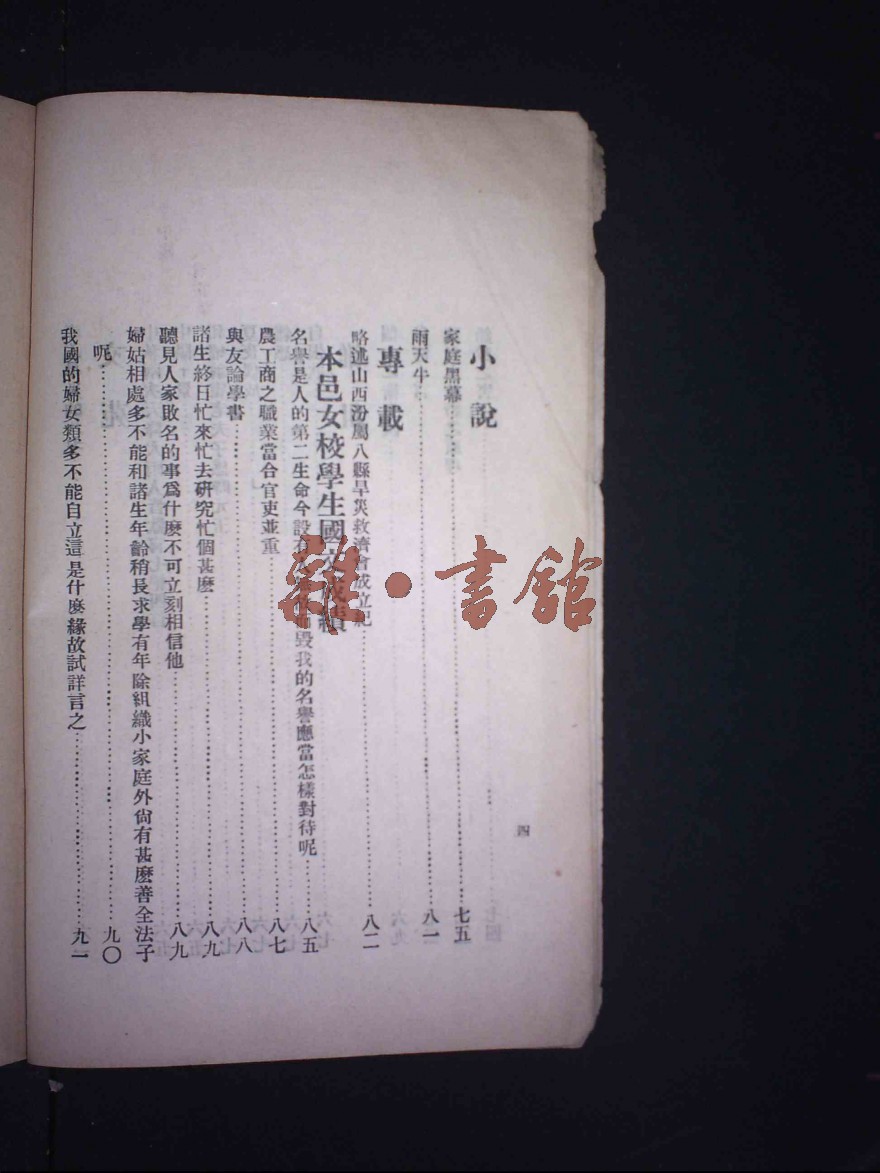 小說
家庭黑幕……七五
雨天牛……八一
專載
略述山西汾屬八縣旱災救濟會成立紀……八二
本邑女校學生國文成績
名譽是人的第二生命今設有毀我的名譽應當怎樣對待呢……八五
農工商之職業當合官吏並重……八七
與友論學書……八八
諸生終日忙來忙去研究忙個甚麽……八九
聽見人家敗名的事爲什麽不可立刻相信他……八九
婦姑相處多不能和諸生年齡稍長求學有年除組織小家庭外尙有甚麽善全法子
呢……九〇
我國的婦女類多不能自立這是什麽緣故試詳言之……九一
四
雜·書館